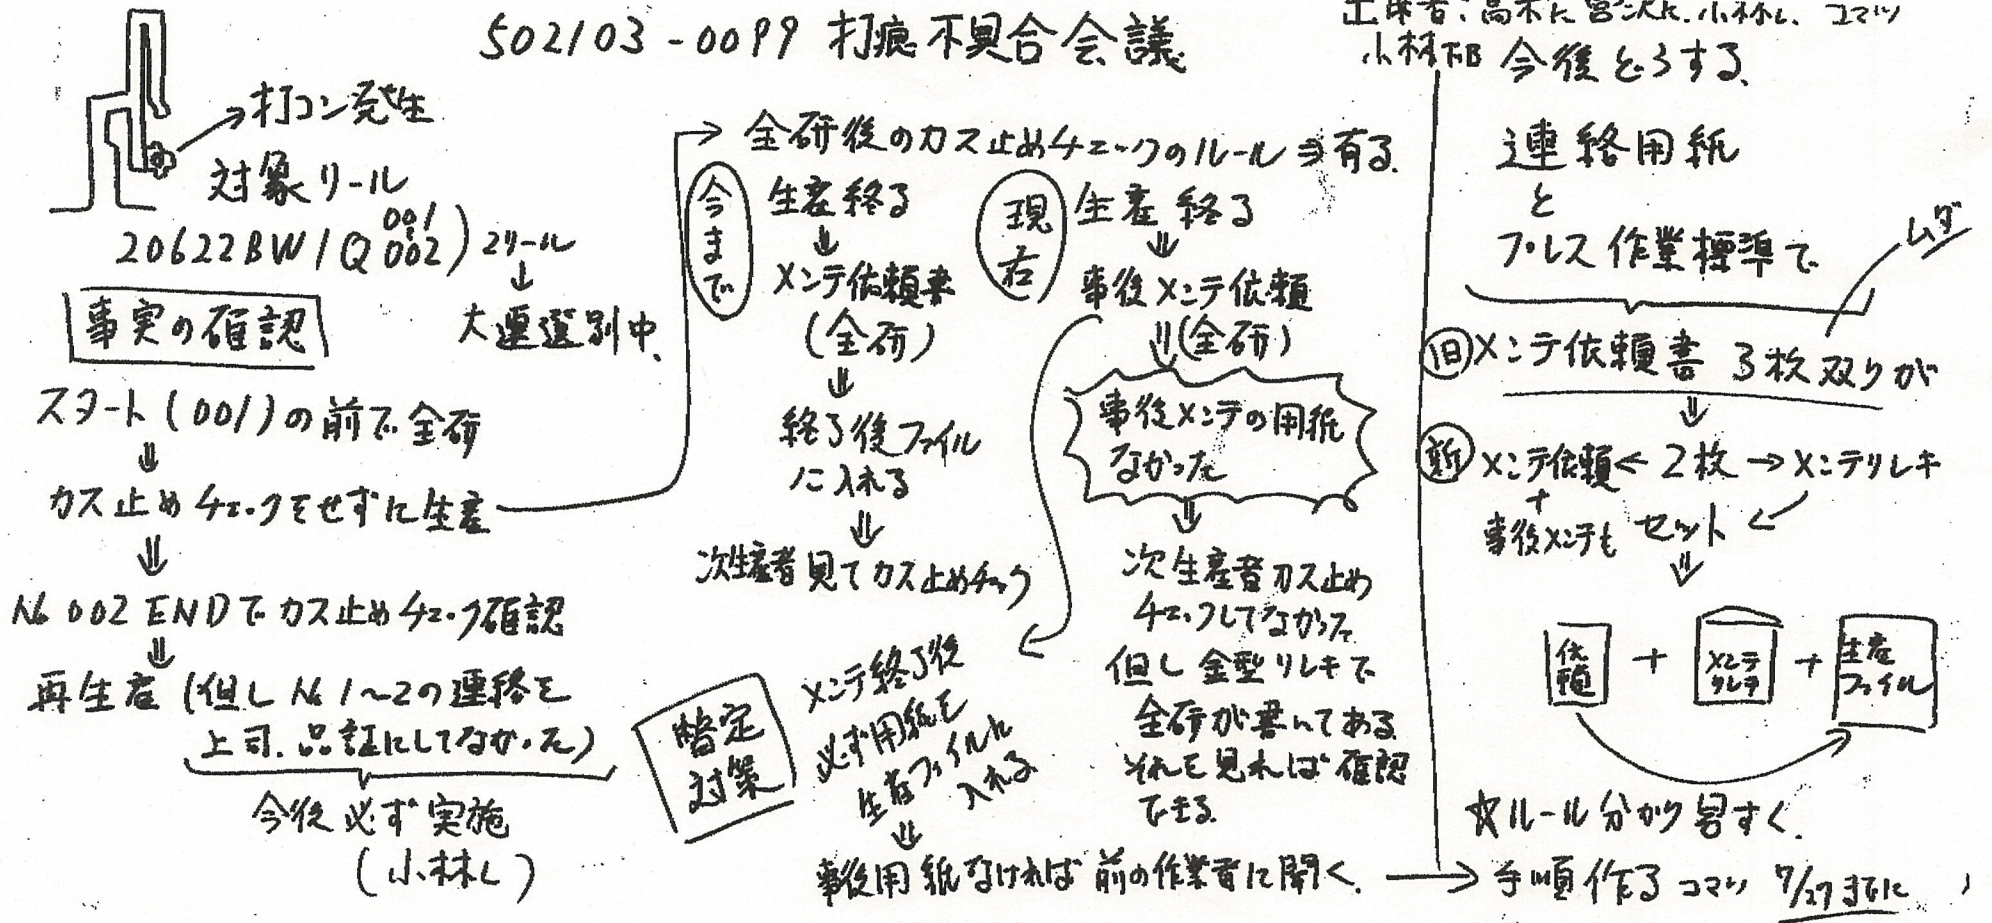 502103-0099 打痕不具合会議
小林部
打コン発生
対象リール
001
20622BW1Q 002) 2リール
↓
大連選別中
事実の確認
スタート(001)の前で全研
⇓
カス止めチェックをせずに生産
⇓
No 002 ENDでカス止めチェック確認
⇓
再生産 (但し No 1〜2の連絡を
上司.品証にしてなかった)
今後必ず実施
(小林L)
→ 全研後のカス止めチェックのルールヨ有る.
今まで
生産終る
⇓
メンテ依頼書
(全研)
⇓
終了後ファイル
に入れる
⇓
次生産者見てカス止めチェック
現在
生産終る
⇓
事後メンテ依頼
⇓(全研)
事後メンテの用紙
なかった
⇓
次生産者カス止め
チェックしてなかった
但し金型リレキで
全研が書いてある
それを見れば確認
できる.
暫定
対策
メンテ終了後
必ず用紙を
生産ファイルに
入れる
⇓
事後用紙なければ前の作業者に聞く.
今後どうする.
連絡用紙
と
プレス作業標準で
ムダ
旧 メンテ依頼書 3枚双りが
⇓
新 メンテ依頼 ← 2枚 → メンテリレキ
+
事後メンテも セット ←
⇓
依頼 + メンテリレキ + 生産ファイル
☆ルール分かり易すく.
→ 手順作る コマツ 7/27までに